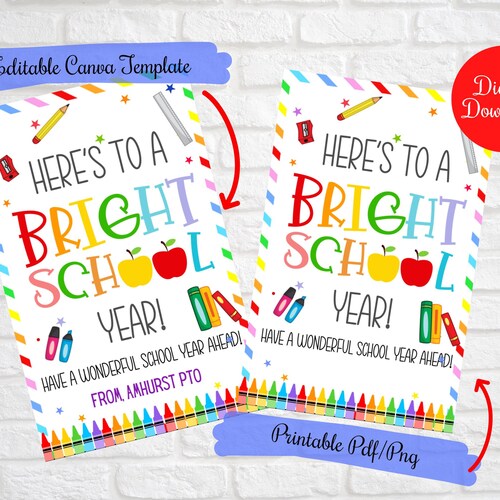 Editable Canva Template
HERE'S TO A
BRIGHT
SCHOOL
YEAR!
HAVE A WONDERFUL SCHOOL YEAR AHEAD!
FROM, AMHURST PTO
HERE'S TO A
BRIGHT
SCHOOL
YEAR!
HAVE A WONDERFUL SCHOOL YEAR AHEAD!
Printable Pdf/Png